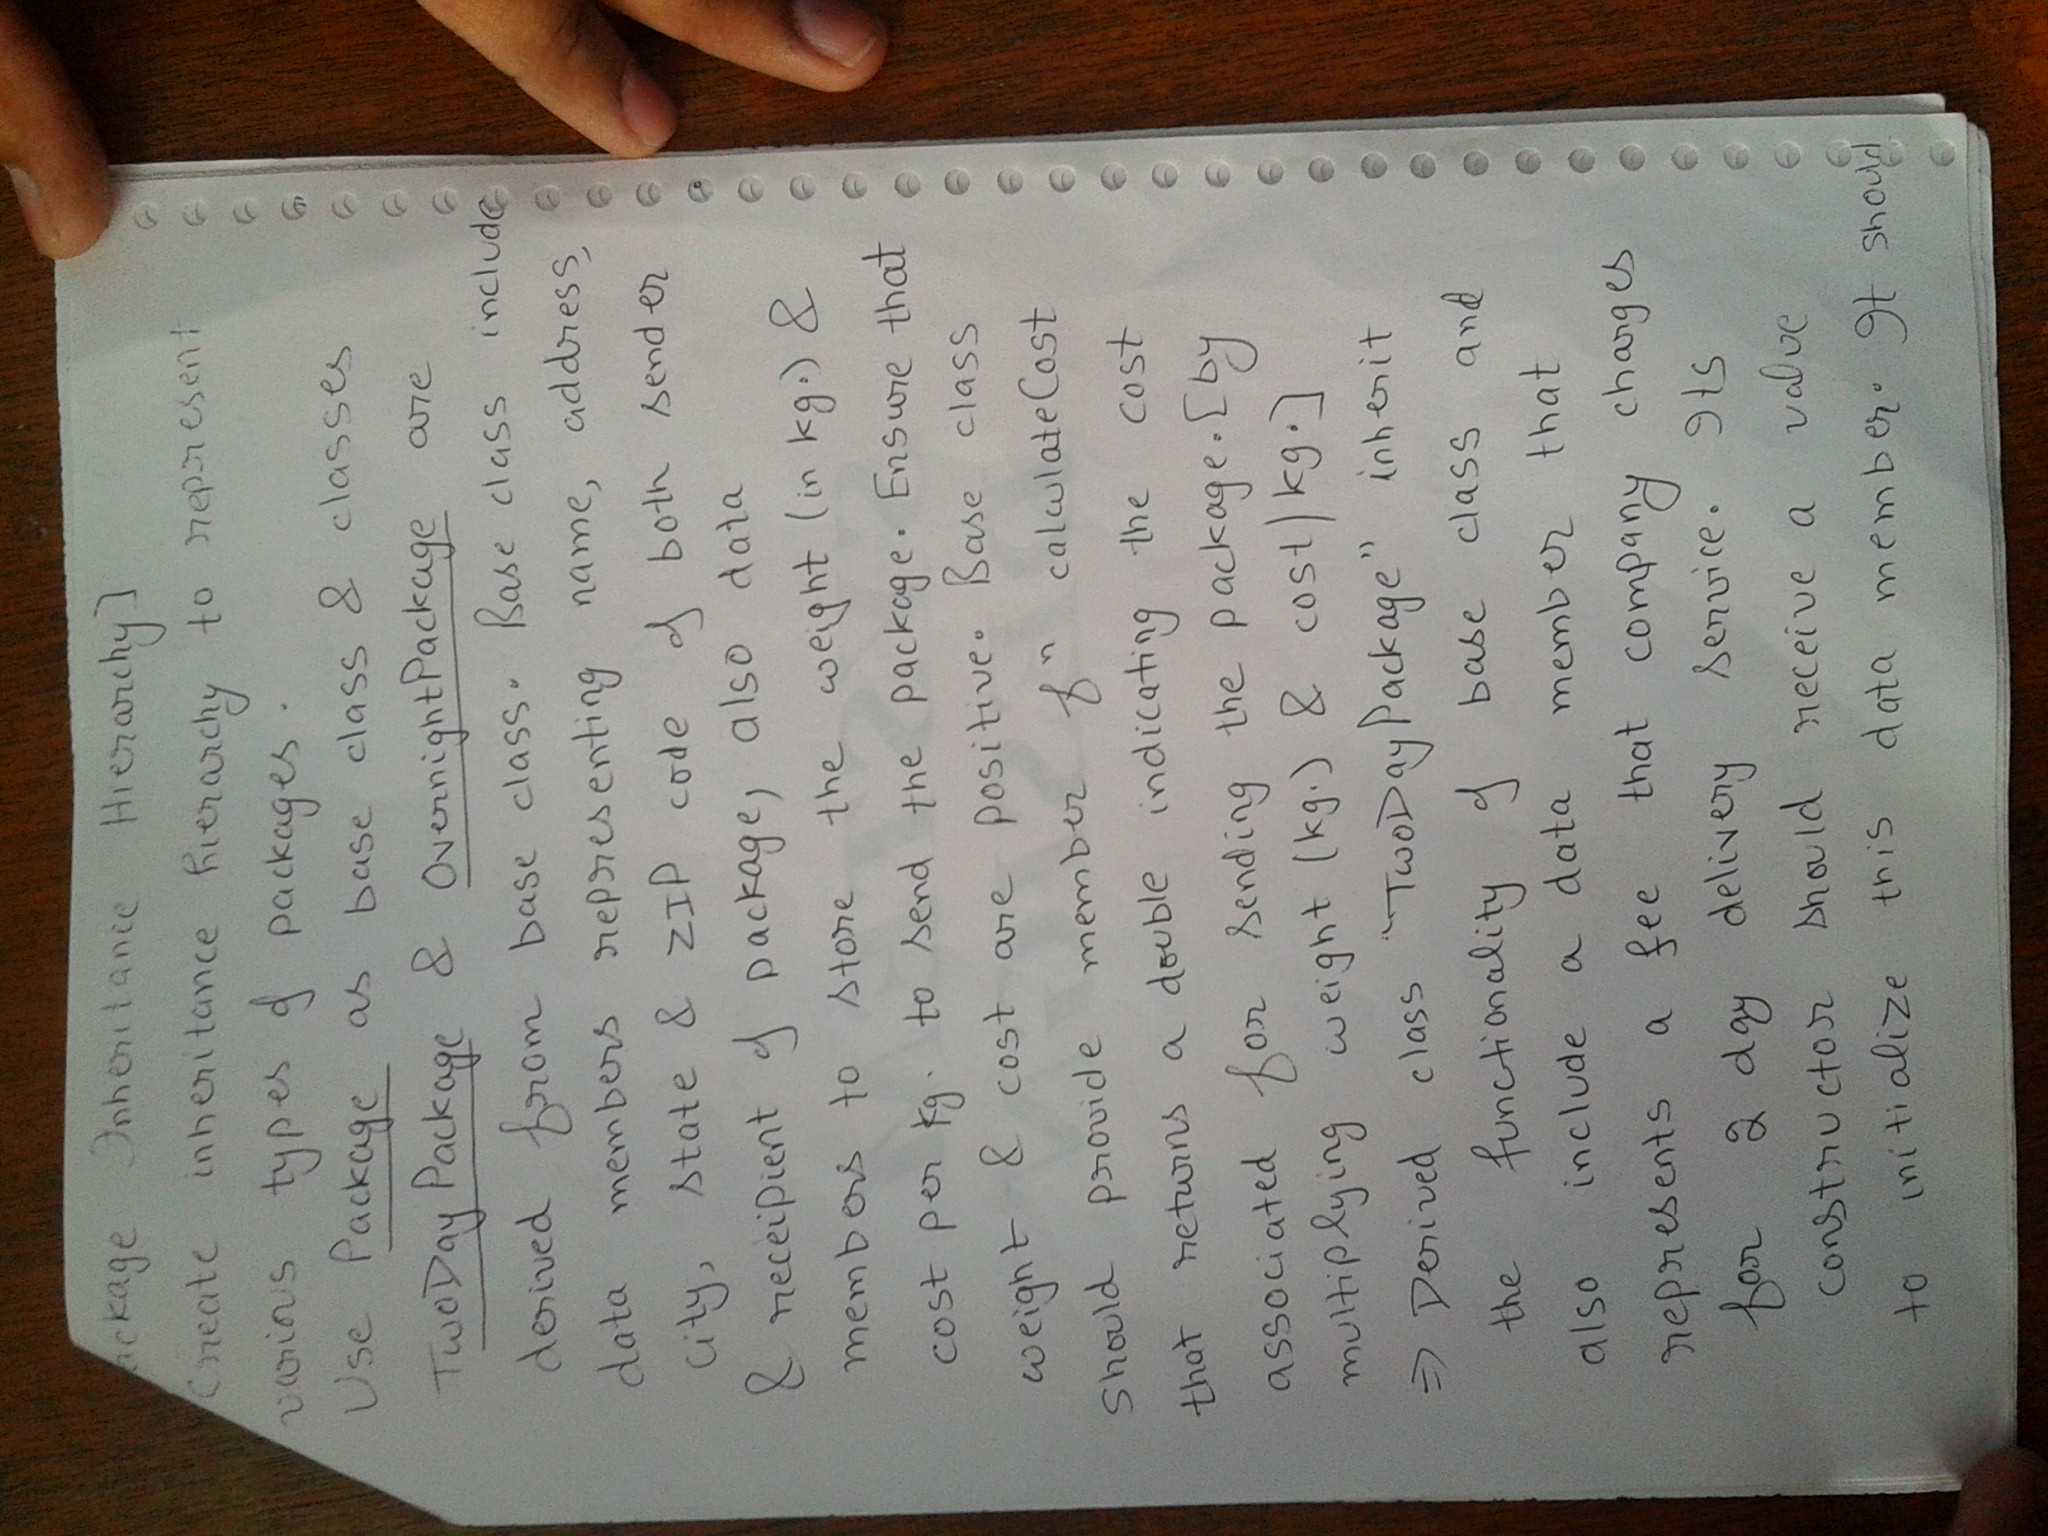 ackage Inheritance Hierarchy]
Create inheritance hierarchy to represent
various types of packages.
Use Package as base class & classes
TwoDayPackage & OvernightPackage are
derived from base class. Base class include
data members representing name, address,
city, state & ZIP code of both sender
& receipient of package, also data
members to store the weight (in kg.) &
cost per kg. to send the package. Ensure that
weight & cost are positive. Base class
should provide member fn calculateCost
that returns a double indicating the cost
associated for sending the package.[by
multiplying weight (kg.) & cost/kg.]
=> Derived class "TwoDayPackage" inherit
the functionality of base class and
also include a data member that
represents a fee that company charges
for 2 day delivery service. Its
constructor should receive a value
to initialize this data member. It should